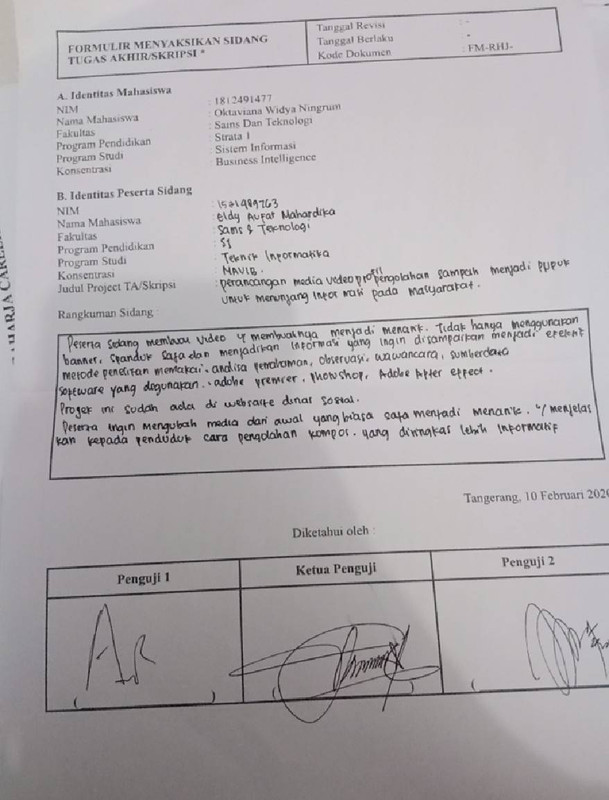 FORMULIR MENYAKSIKAN SIDANG
TUGAS AKHIR/SKRIPSI *
Tanggal Revisi : -
Tanggal Berlaku : -
Kode Dokumen : FM-RHJ-
A. Identitas Mahasiswa
NIM : 1812491477
Nama Mahasiswa : Oktaviana Widya Ningrum
Fakultas : Sains Dan Teknologi
Program Pendidikan : Strata 1
Program Studi : Sistem Informasi
Konsentrasi : Business Intelligence
B. Identitas Peserta Sidang
NIM : 1521489763
Nama Mahasiswa : Eldy Aufat Mahardika
Fakultas : Sains & Teknologi
Program Pendidikan : S1
Program Studi : Teknik Informatika
Konsentrasi : MAVIB.
Judul Project TA/Skripsi : perancangan media video profil pengolahan sampah menjadi pupuk
untuk menunjang informasi pada masyarakat.
Rangkuman Sidang :
Peserta sidang membuat video u/ membuatnya menjadi menarik. Tidak hanya menggunakan
banner, spanduk saja dan menjadikan informasi yang ingin disampaikan menjadi efesient
metode penelitian memakai analisa pemahaman, observasi, wawancara, sumberdata
software yang digunakan.. adobe premier, photoshop, Adobe After effect.
Projek ini sudah ada di website dinas sosial.
Peserta ingin mengubah media dari awal yang biasa saja menjadi menarik. u/ menjelas
kan kepada penduduk cara pengolahan kompos. yang diringkas lebih informatif
Tangerang, 10 Februari 2020
Diketahui oleh :
Penguji 1
Ketua Penguji
Penguji 2